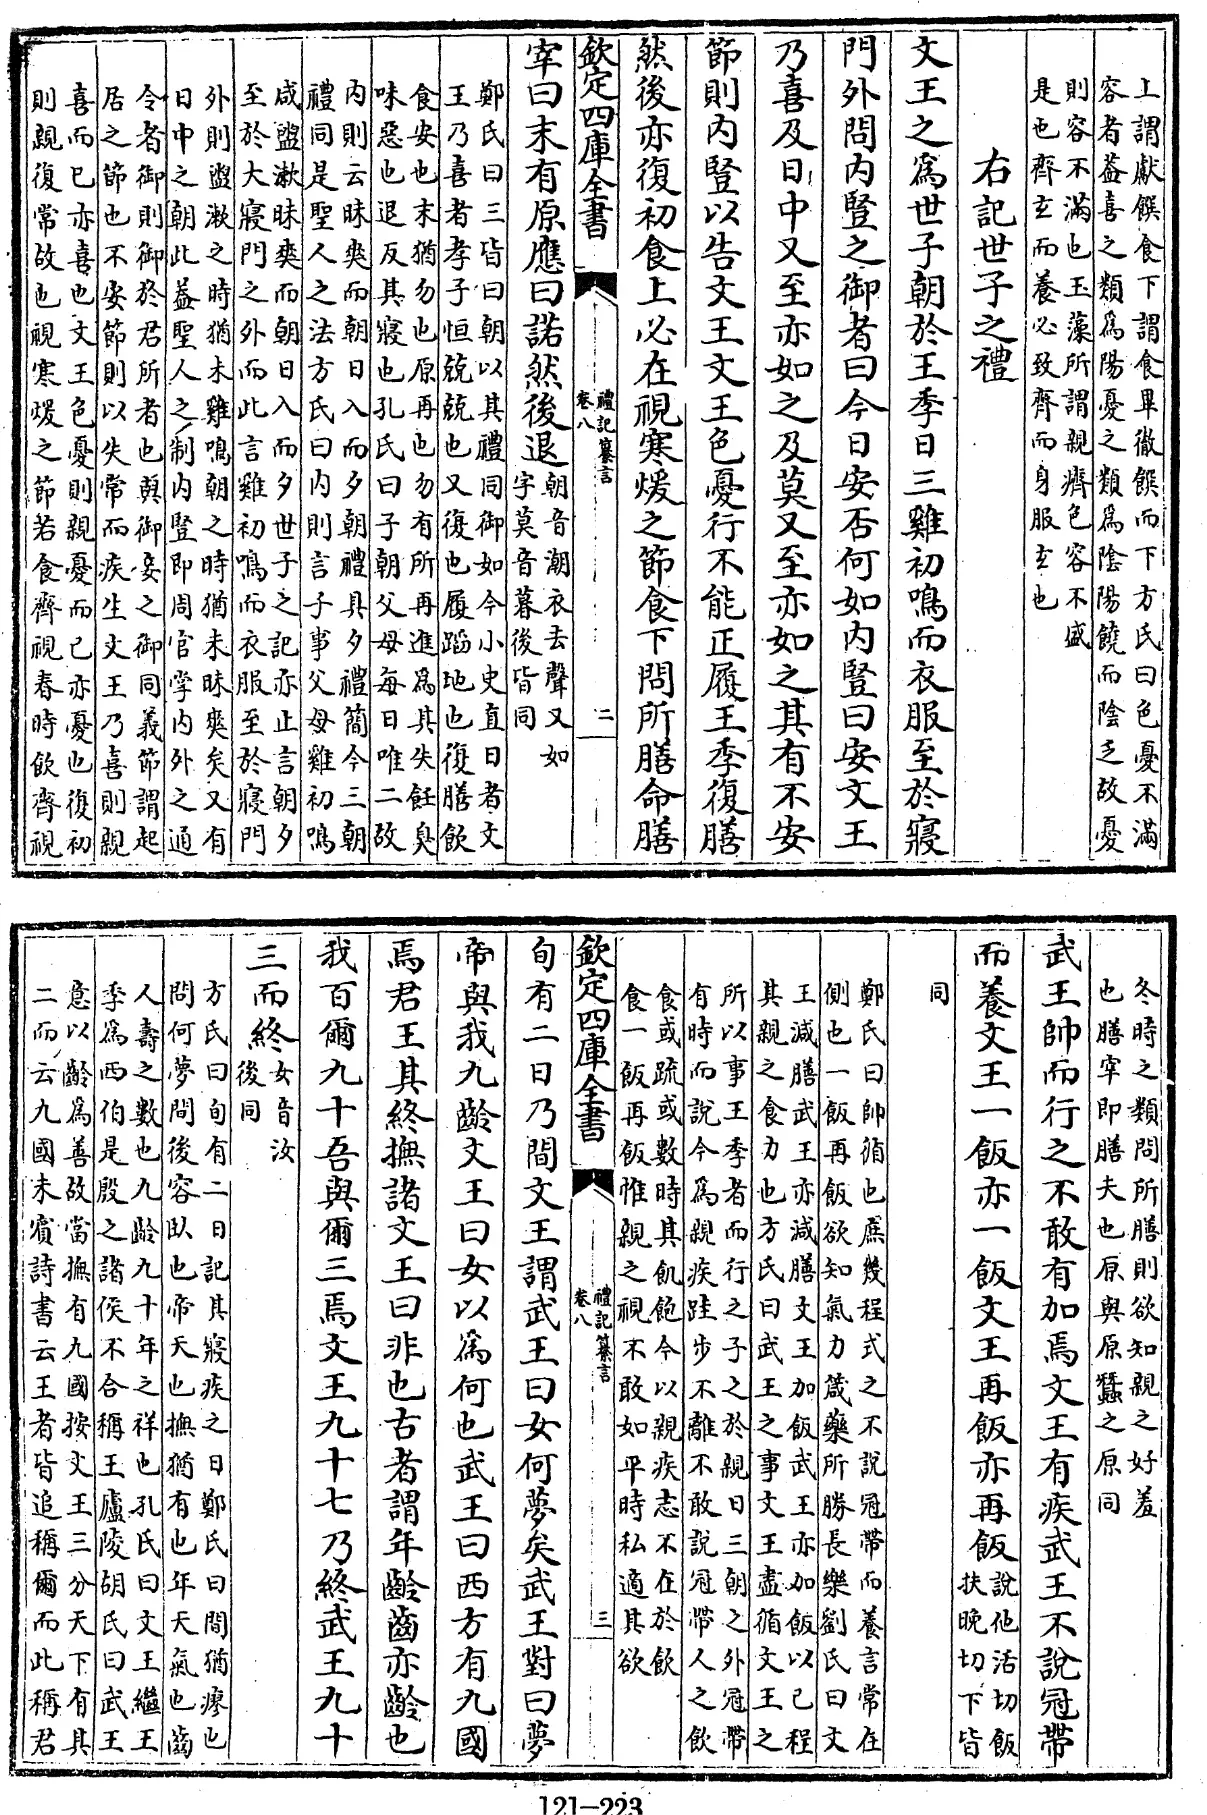 上謂獻饌食下謂食畢徹饌而下方氏曰色憂不滿
容者葢喜之類爲陽憂之類爲陰陽饒而陰乏故憂
則容不滿也玉藻所謂親癠色容不盛
是也齊玄而養必致齊而身服玄也
右記世子之禮
文王之爲世子朝於王季日三雞初鳴而衣服至於寢
門外問内豎之御者曰今日安否何如内豎曰安文王
乃喜及日中又至亦如之及莫又至亦如之其有不安
節則内豎以告文王文王色憂行不能正履王季復膳
然後亦復初食上必在視寒煖之節食下問所膳命膳
宰曰末有原應曰諾然後退
朝音潮衣去聲又如
字莫音暮後皆同
鄭氏曰三皆曰朝以其禮同御如今小史直日者文
王乃喜者孝子恒兢兢也又復也履蹈地也復膳飲
食安也末猶勿也原再也勿有所再進爲其失飪臭
味惡也退反其寢也孔氏曰子朝父母每日唯二故
内則云昧爽而朝日入而夕朝禮具夕禮簡今三朝
禮同是聖人之法方氏曰内則言子事父母雞初鳴
咸盥漱昧爽而朝日入而夕世子之記亦止言朝夕
至於大寢門之外而此言雞初鳴而衣服至於寢門
外則盥漱之時猶未雞鳴朝之時猶未昧爽矣又有
日中之朝此葢聖人之制内豎即周官掌内外之通
令者御則御於君所者也與御妾之御同義節謂起
居之節也不安節則以失常而疾生文王乃喜則親
喜而已亦喜也文王色憂則親憂而已亦憂也復初
則親復常故也視寒煖之節若食齊視春時飲齊視
欽定四庫全書
禮記纂言
卷八
二
冬時之類問所膳則欲知親之好羞
也膳宰即膳夫也原與原蠶之原同
武王帥而行之不敢有加焉文王有疾武王不說冠帶
而養文王一飯亦一飯文王再飯亦再飯
說他活切飯
扶晚切下皆
同
鄭氏曰帥循也庶幾程式之不說冠帶而養言常在
側也一飯再飯欲知氣力箴藥所勝長樂劉氏曰文
王減膳武王亦減膳文王加飯武王亦加飯以己程
其親之食力也方氏曰武王之事文王盡循文王之
所以事王季者而行之子之於親日三朝之外冠帶
有時而說今爲親疾跬步不離不敢說冠帶人之飲
食或疏或數時其飢飽今以親疾志不在於飲
食一飯再飯惟親之視不敢如平時私適其欲
欽定四庫全書
禮記纂言
卷八
三
旬有二日乃間文王謂武王曰女何夢矣武王對曰夢
帝與我九齡文王曰女以爲何也武王曰西方有九國
焉君王其終撫諸文王曰非也古者謂年齡齒亦齡也
我百爾九十吾與爾三焉文王九十七乃終武王九十
三而終
女音汝
後同
方氏曰旬有二日記其寢疾之日鄭氏曰間猶瘳也
問何夢問後容臥也帝天也撫猶有也年天氣也齒
人壽之數也九齡九十年之祥也孔氏曰文王繼王
季爲西伯是殷之諸侯不合稱王廬陵胡氏曰武王
意以齡爲善故當撫有九國按文王三分天下有其
二而云九國未賓詩書云王者皆追稱爾而此稱君
121—223